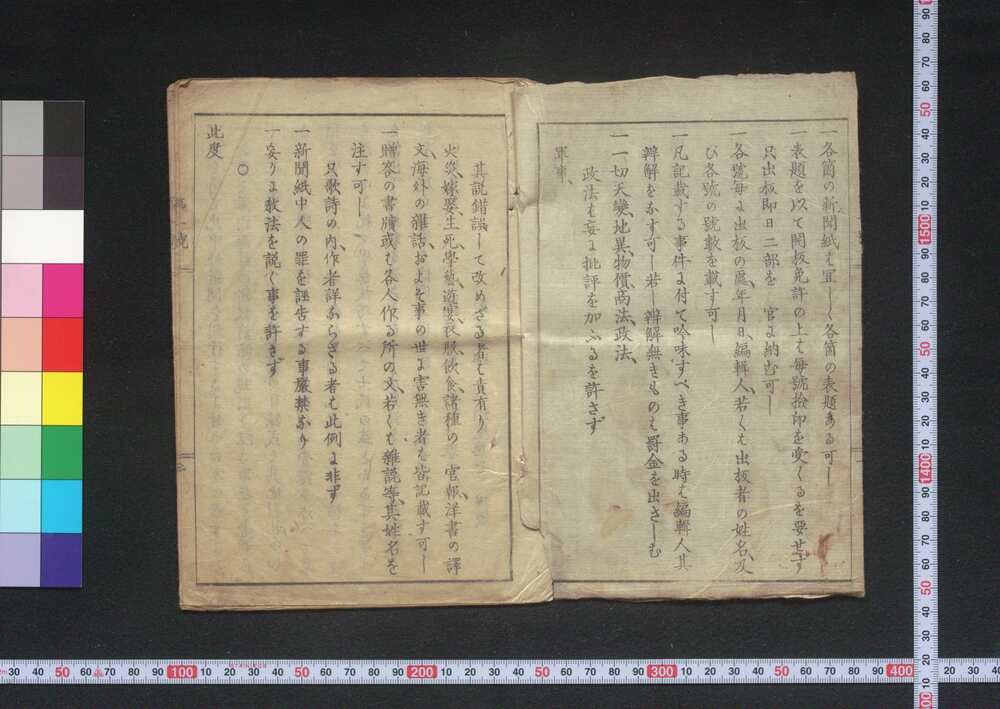 一各箇の新聞紙は宜しく各箇の表題ある可し
一表題を以て開板免許の上は毎號撿印を受くるを要せず
只出板即日二部を 官に納む可し
一各號毎に出板の處年月日、編輯人、若くは出板者の姓名、及
び各號の號數を載す可し
一凡記載する事件に付て吟味すべき事ある時は編輯人其
辨解をなす可し若し辨解無きものは罰金を出さしむ
一一切天變、地異、物價、商法、政法、
政法は妄に批評を加ふるを許さず
軍事、
其説錯誤して改めざる者は責有り
火災、嫁娶、生死、學藝、遊宴、衣服、飲食、諸種の官報、洋書の譯
文、海外の雜話、およそ事の世に害無き者は皆記載す可し
一贈答の書牘或は各人作る所の文、若くは雜説等、其姓名を
注す可し
只歌詩の内、作者詳ならざる者は此例に非ず
一新聞紙中人の罪を誣告する事嚴禁なり
一妄りに教法を説く事を許さず
○
此度
號
二